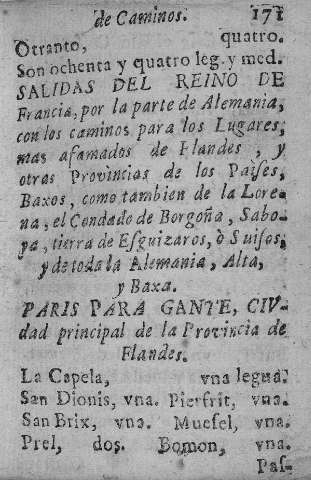 de Caminos. 171
Otranto, quatro.
Son ochenta y quatro leg. y med.
SALIDAS DEL REINO DE
Francia, por la parte de Alemania,
con los caminos para los Lugares,
mas afamados de Flandes, y
otras Provincias de los Paises,
Baxos, como tambien de la Lore-
na, el Condado de Borgoña, Sabo-
ya, tierra de Esguizaros, ò Suisos,
y de toda la Alemania, Alta,
y Baxa.
PARIS PARA GANTE, CIV-
dad principal de la Provincia de
Flandes.
La Capela, vna legua.
San Dionis, vna. Pierfrit, vna.
San Brix, vna. Muesel, vna.
Prel, dos. Bomon, vna.
Pas-